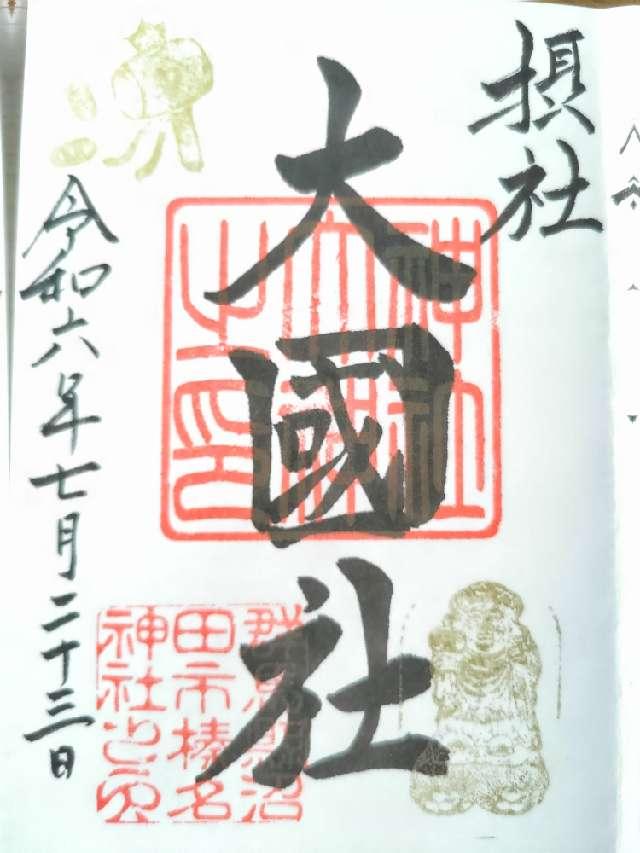 摂社
大國社
令和六年七月二十三日
群馬縣沼
田市榛名
神社之印